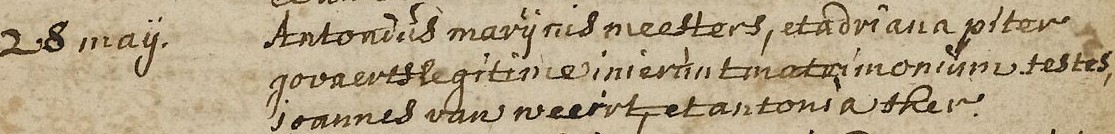 28 maij. Antondus marijnis meesters, et adriana piter
govaerts legitime inierunt matrimonium testes,
joannes van weert, et antonia sker.